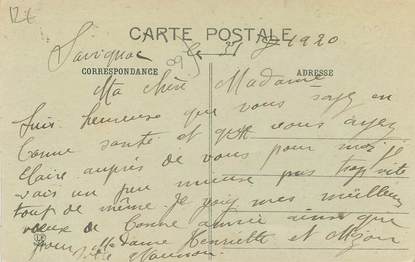 CARTE POSTALE
Savignac le 31 1920
CORRESPONDANCE
ADRESSE
Ma chère Madame
Suis heureuse que vous soyez en
bonne santé et que vous ayez
Claire auprès de vous pour moi
vais un peu mieux pas trop vite
tout de même. Je vous mes meilleurs
vœux de bonne année ainsi que
pour Madame Henriette et